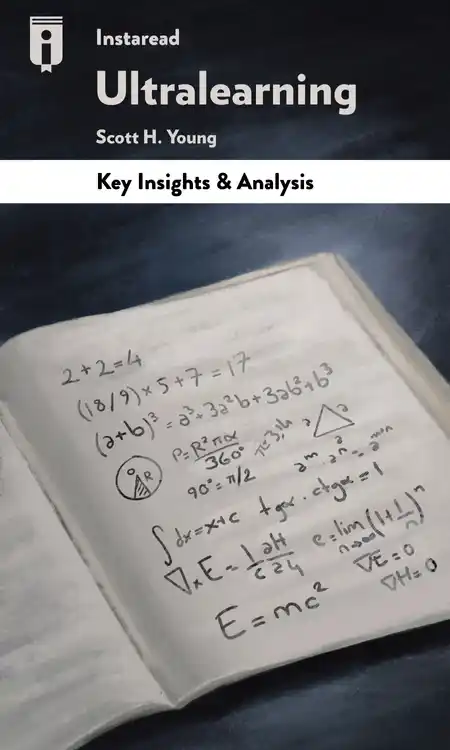 Instaread
Ultralearning
Scott H. Young
Key Insights & Analysis
2+2=4
(18/9)×5+7=17
(a+b)³=a³+3a²b+3ab²+b³
P=R²πα/360° π≈3,14 a a a
R
90°=π/2 aᵐ·aⁿ=aᵐ⁺ⁿ
∫dx=x+c tgα·ctgα=1
∇×E=1/c ∂H/ e=lim n→∞ (1+1/n)ⁿ
∇E=0
∇H=0
E=mc²